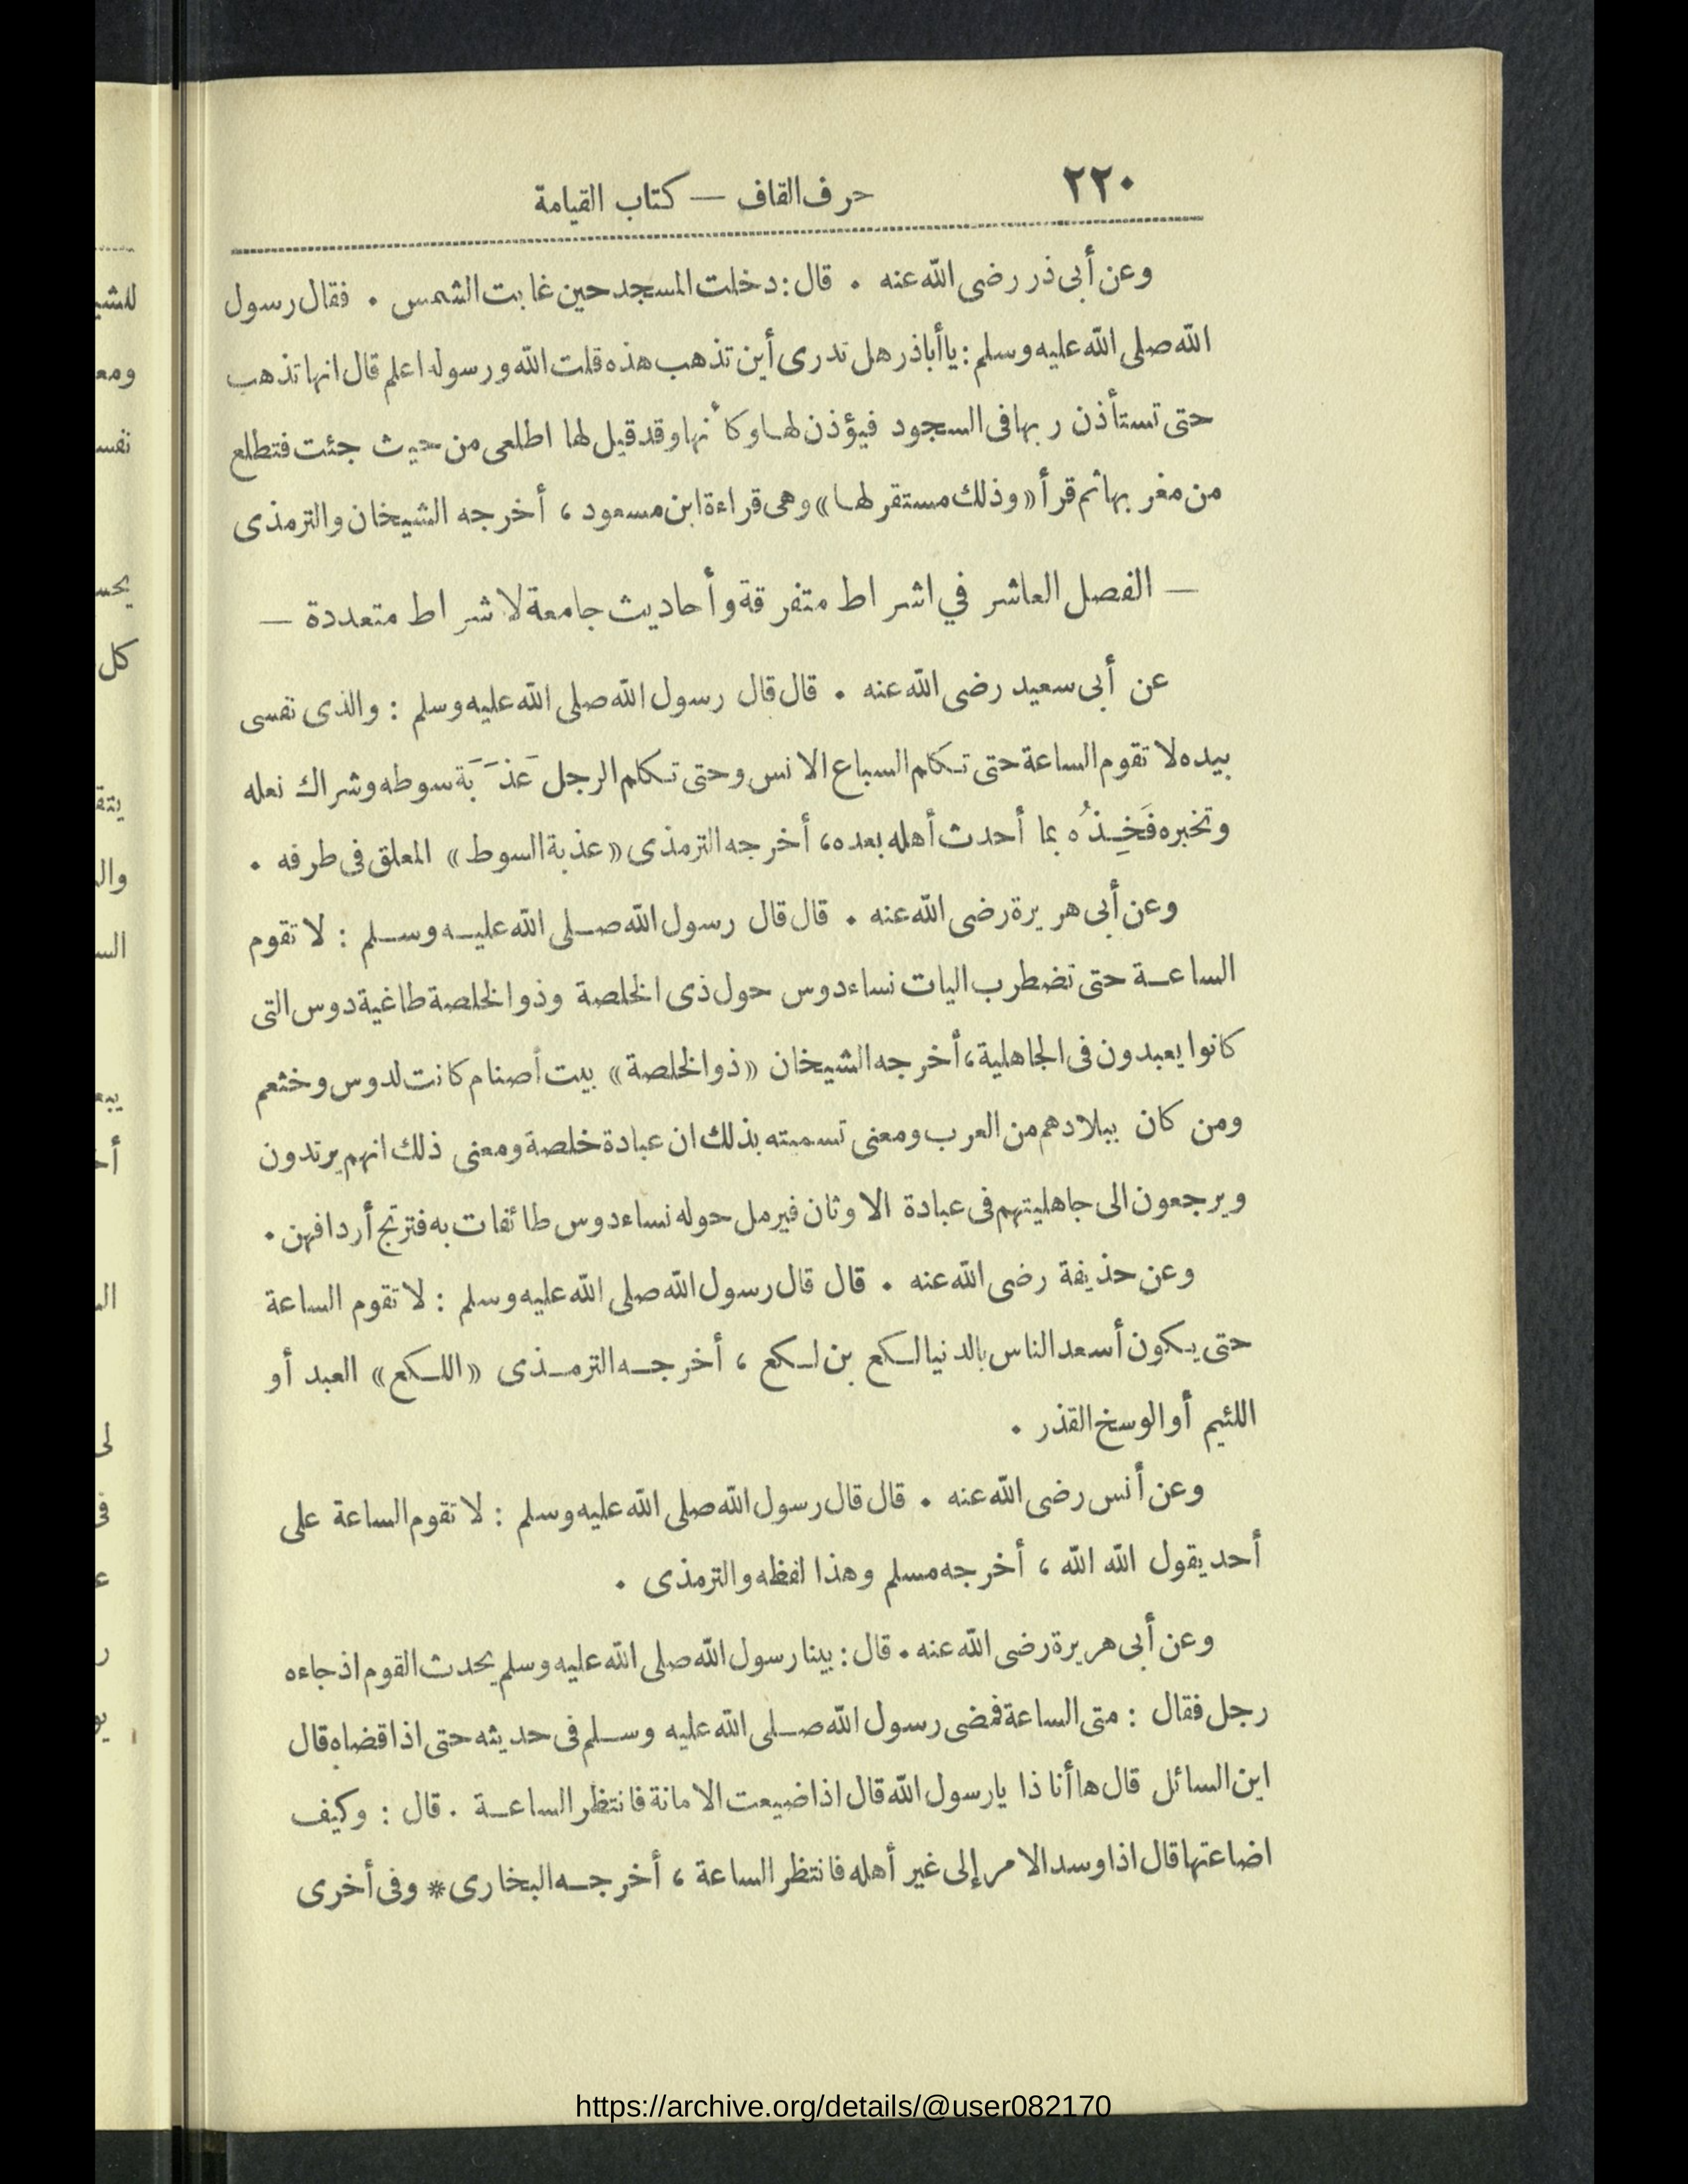 ٢٢٠
حرف القاف — كتاب القيامة
وعن أبى ذر رضى الله عنه . قال : دخلت المسجد حين غابت الشمس . فقال رسول
الله صلى الله عليه وسلم : يا أباذر هل تدرى أين تذهب هذه قلت الله ورسوله اعلم قال انها تذهب
حتى تستأذن ربها فى السجود فيؤذن لها وكأنها وقد قيل لها اطلعى من حيث جئت فتطلع
من مغربها ثم قرأ «وذلك مستقر لها» وهى قراءة ابن مسعود ، أخرجه الشيخان والترمذى
— الفصل العاشر في اشراط متفرقة وأحاديث جامعة لاشراط متعددة —
عن أبى سعيد رضى الله عنه . قال قال رسول الله صلى الله عليه وسلم : والذى نفسى
بيده لا تقوم الساعة حتى تكلم السباع الانس وحتى تكلم الرجل عَذَبَة سوطه وشراك نعله
وتخبره فَخِذُه بما أحدث أهله بعده ، أخرجه الترمذى «عذبة السوط» المعلق فى طرفه .
وعن أبى هريرة رضى الله عنه . قال قال رسول الله صلى الله عليه وسلم : لا تقوم
الساعة حتى تضطرب اليات نساء دوس حول ذى الخلصة وذو الخلصة طاغية دوس التى
كانوا يعبدون فى الجاهلية ، أخرجه الشيخان «ذو الخلصة» بيت أصنام كانت لدوس وخثعم
ومن كان ببلادهم من العرب ومعنى تسميته بذلك ان عبادة خلصة ومعنى ذلك انهم يرتدون
ويرجعون الى جاهليتهم فى عبادة الاوثان فيرمل حوله نساء دوس طائفات به فترتج أردافهن .
وعن حذيفة رضى الله عنه . قال قال رسول الله صلى الله عليه وسلم : لا تقوم الساعة
حتى يكون أسعد الناس بالدنيا لكع بن لكع ، أخرجه الترمذى «اللكع» العبد أو
اللئيم أو الوسخ القذر .
وعن أنس رضى الله عنه . قال قال رسول الله صلى الله عليه وسلم : لا تقوم الساعة على
أحد يقول الله الله ، أخرجه مسلم وهذا لفظه والترمذى .
وعن أبى هريرة رضى الله عنه . قال : بينا رسول الله صلى الله عليه وسلم يحدث القوم اذ جاءه
رجل فقال : متى الساعة فمضى رسول الله صلى الله عليه وسلم فى حديثه حتى اذا قضاه قال
اين السائل قال ها أنا ذا يا رسول الله قال اذا ضيعت الامانة فانتظر الساعة . قال : وكيف
اضاعتها قال اذا وسد الامر إلى غير أهله فانتظر الساعة ، أخرجه البخارى * وفى أخرى
https://archive.org/details/@user082170